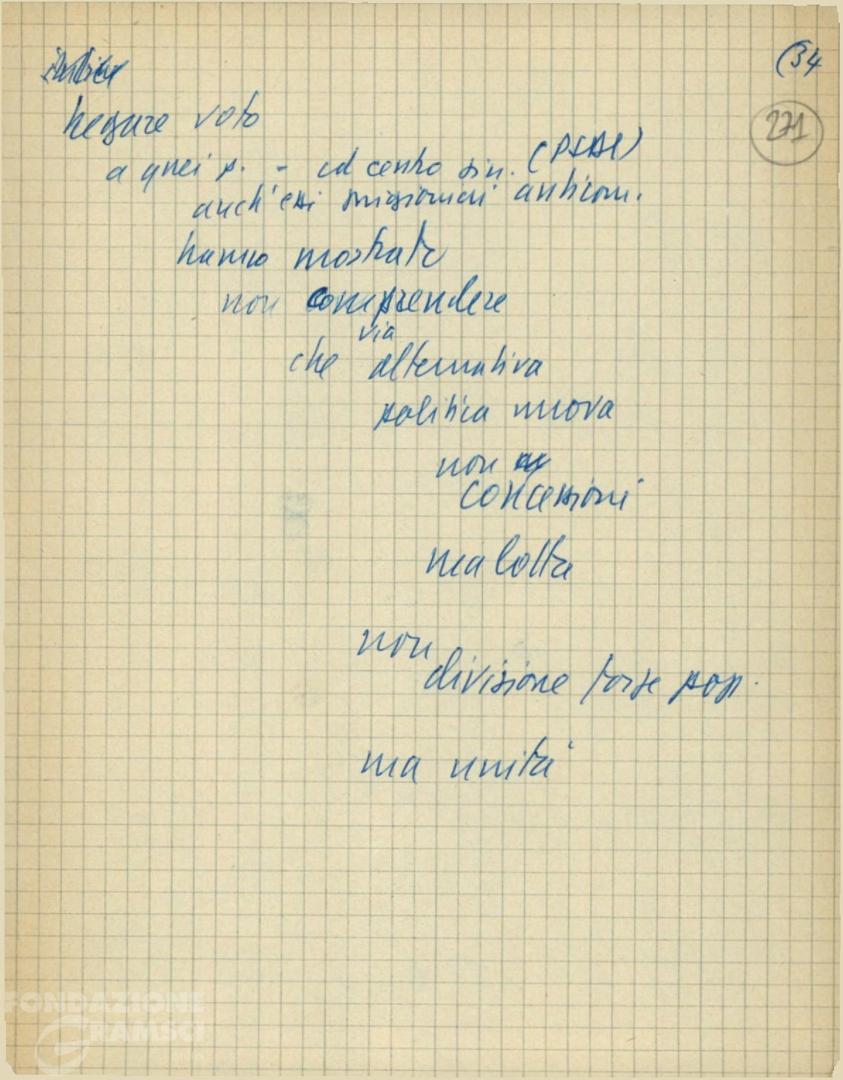 (34
271
negare voto
a quei p. - cd centro sin. (PSDI)
anch'essi anticom.
hanno mostrato
non comprendere
che via alternativa
politica nuova
non
concessioni
ma lotta
non
divisione forze pop.
ma unità
FONDAZIONE
GRAMSCI